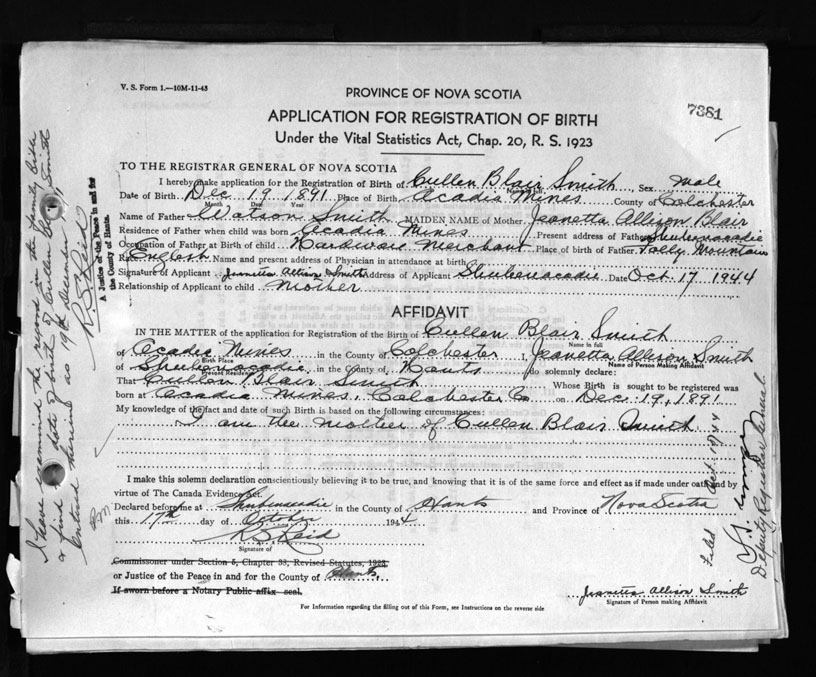 V. S. Form 1.—10M-11-43
PROVINCE OF NOVA SCOTIA
7381
APPLICATION FOR REGISTRATION OF BIRTH
Under the Vital Statistics Act, Chap. 20, R. S. 1923
TO THE REGISTRAR GENERAL OF NOVA SCOTIA
I hereby make application for the Registration of Birth of Cullen Blair Smith, Sex male
Name in full
Date of Birth Dec 19 1891 Place of Birth Acadia Mines County of Colchester
Month Day Year
Name of Father Watson Smith MAIDEN NAME of Mother Jeanetta Allison Blair
Residence of Father when child was born Acadia Mines Present address of Father Shubenacadie
Occupation of Father at Birth of child Hardware Merchant Place of birth of Father Folly Mountain
Race English Name and present address of Physician in attendance at birth
Signature of Applicant Jeanetta Allison Smith Address of Applicant Shubenacadie Date Oct 17 1944
Relationship of Applicant to child Mother
AFFIDAVIT
IN THE MATTER of the application for Registration of the Birth of Cullen Blair Smith
Name in full
of Acadia Mines in the County of Colchester I, Jeanetta Allison Smith
Birth Place
Name of Person Making Affidavit
of Shubenacadie in the County of Hants do solemnly declare:
Present Residence
That Cullen Blair Smith Whose Birth is sought to be registered was
born at Acadia Mines, Colchester Co on Dec. 19, 1891
My knowledge of the fact and date of such Birth is based on the following circumstances:
I am the mother of Cullen Blair Smith
I make this solemn declaration conscientiously believing it to be true, and knowing that it is of the same force and effect as if made under oath and by
virtue of The Canada Evidence Act.
Declared before me at Shubenacadie in the County of Hants and Province of Nova Scotia
this 17th day of October 1944
R S Reid
Signature of
Commissioner under Section 5, Chapter 33, Revised Statutes, 1923,
or Justice of the Peace in and for the County of Hants.
If sworn before a Notary Public affix seal.
Jeanetta Allison Smith
Signature of Person making Affidavit
For Information regarding the filling out of this Form, see Instructions on the reverse side
I have examined the record in the family bible
& find date of birth of Cullen Blair Smith
entered therein as 19th December 1891
R. S. Reid
A Justice of the Peace in and for
the County of Hants.
Filed Oct. 19/44
Deputy Registrar General.